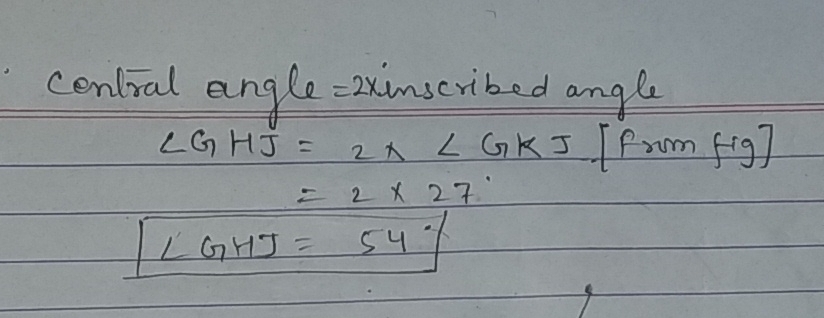 Central angle = 2x inscribed angle
∠GHJ = 2 x ∠GKJ [from fig]
= 2 x 27°
∠GHJ = 54°